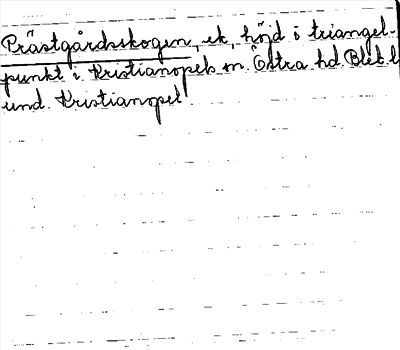 Prästgårdsskogen, ek, höjd i triangel-
punkt i Kristianopels sn. Östra hd. Blek. l
und. Kristianopel